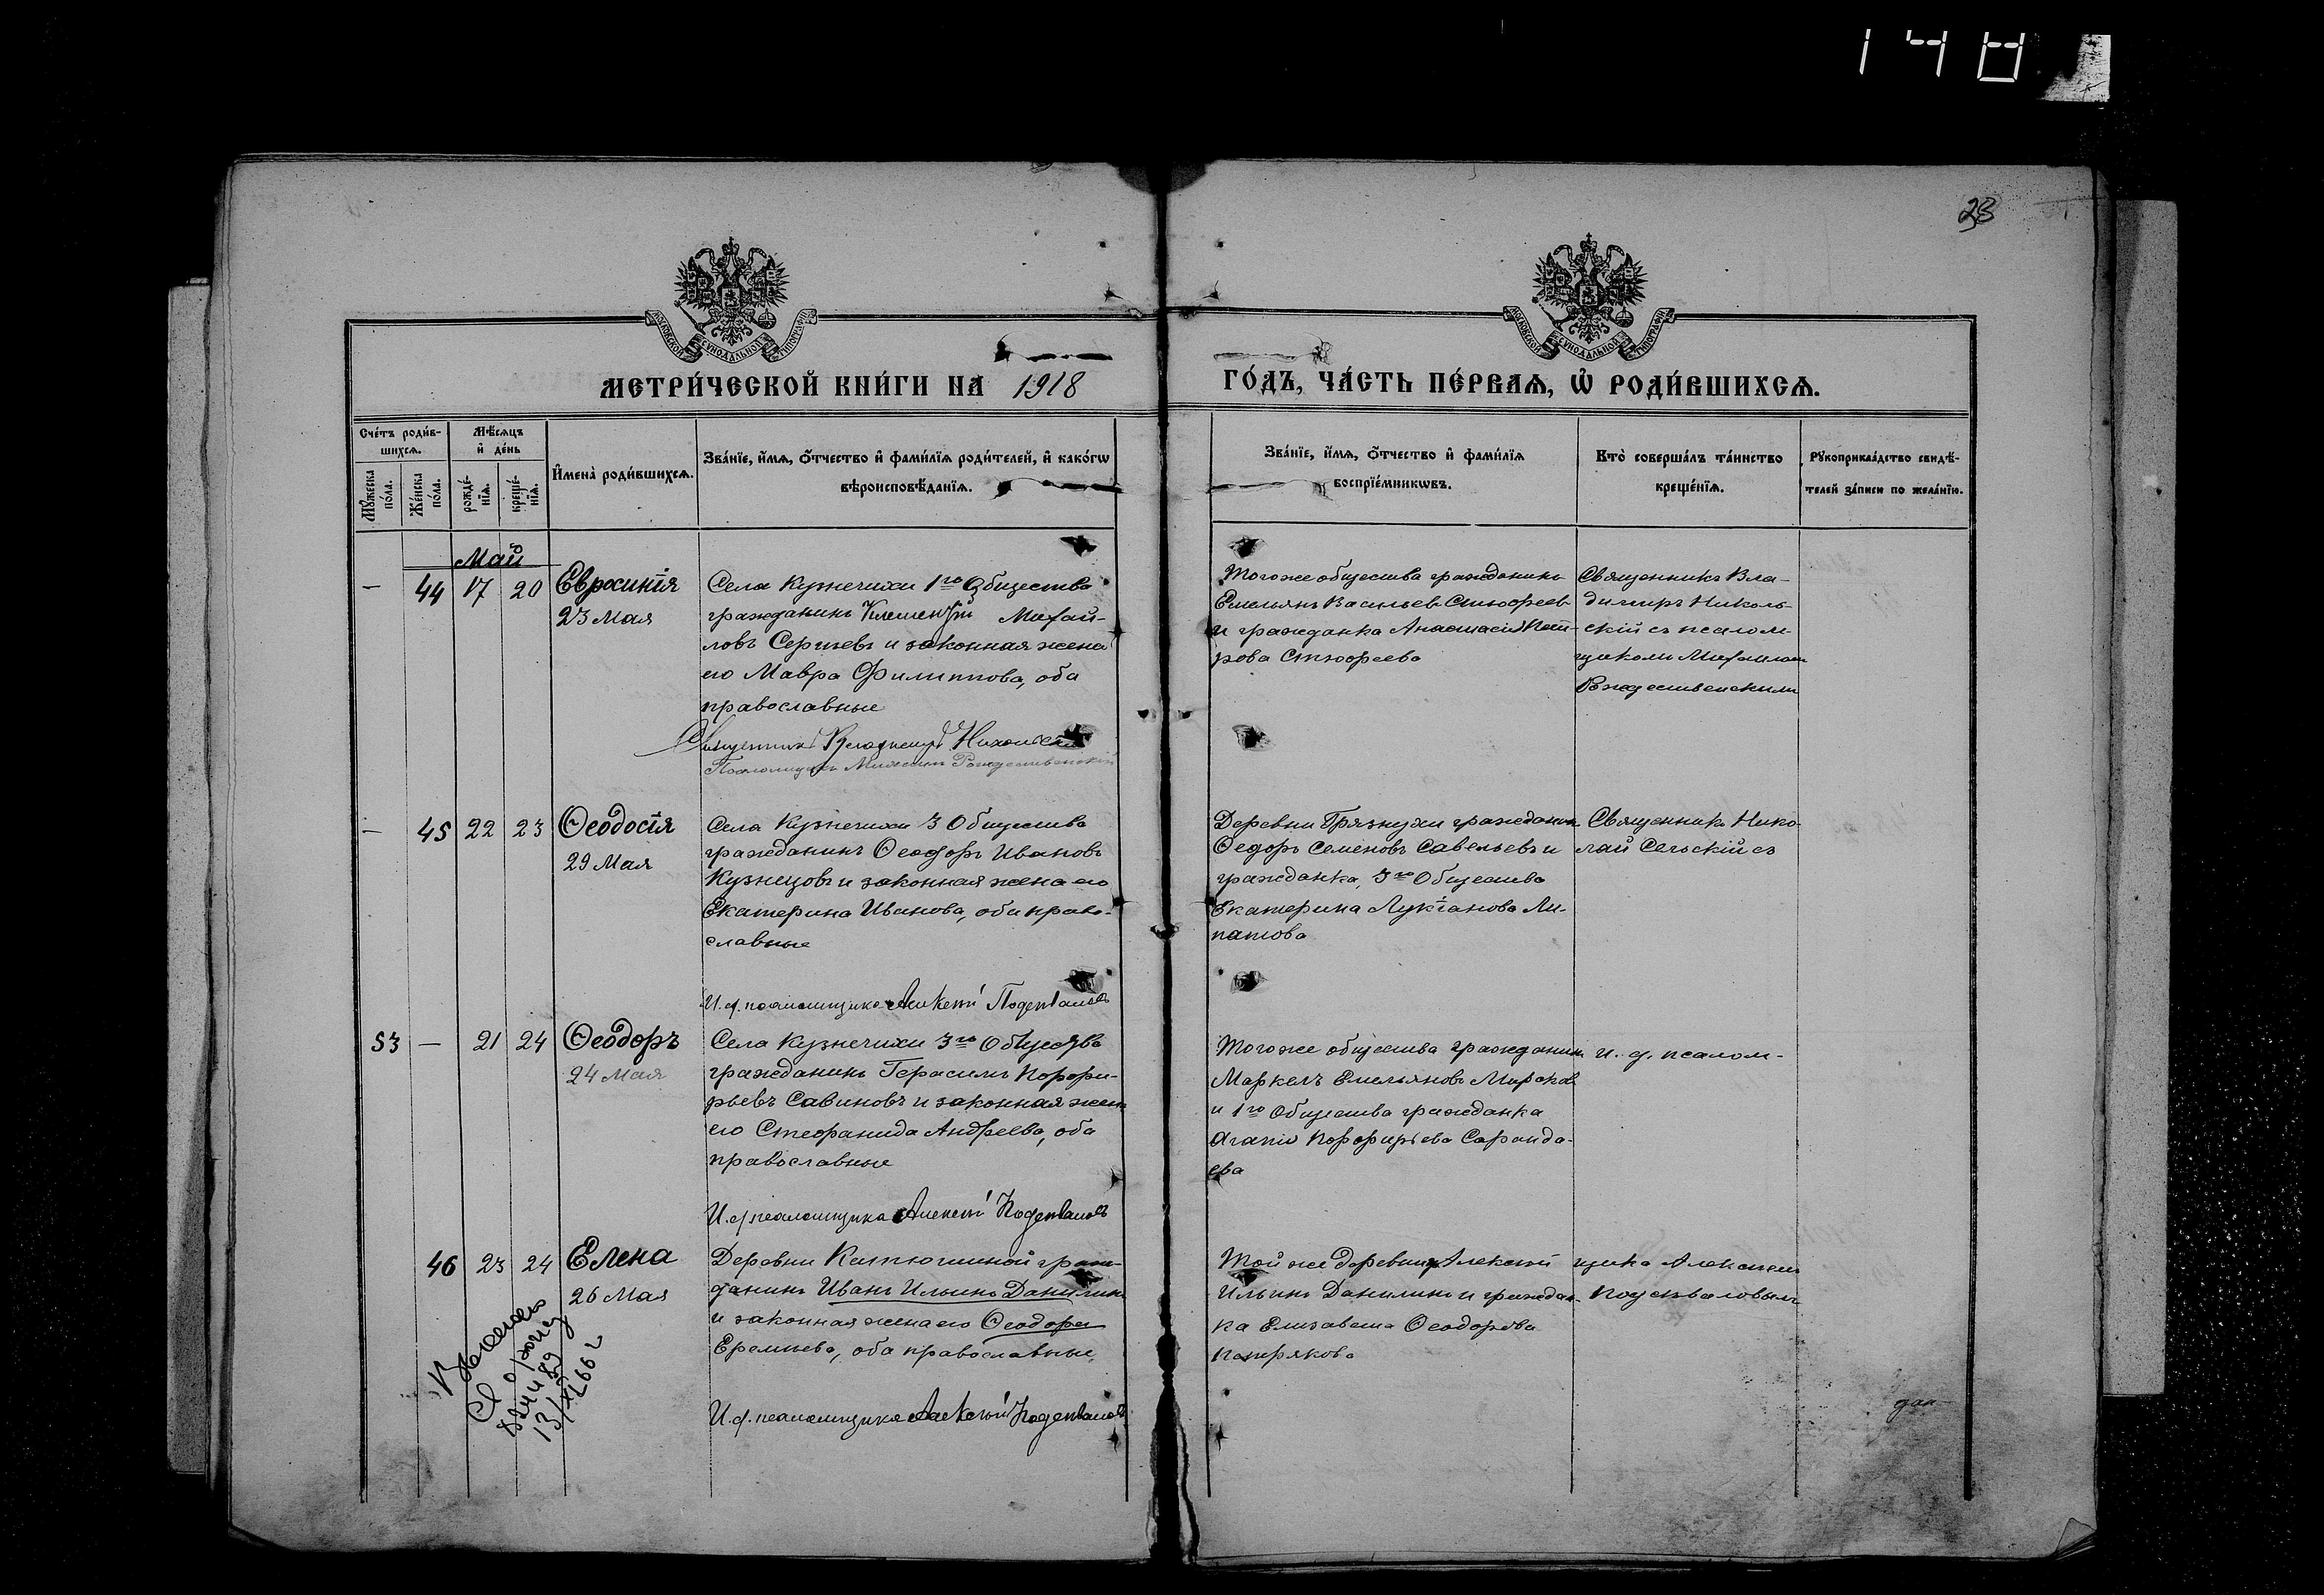 148
23
МОСКОВСКОЙ СУНОДАЛЬНОЙ ТИПОГРАФІИ
МОСКОВСКОЙ СУНОДАЛЬНОЙ ТИПОГРАФІИ
МЕТРИ́ЧЕСКОЙ КНИ́ГИ НА 1918
ГО́ДЪ, ЧА́СТЬ ПЕ́РВАѦ, Ѡ҆ РОДИ́ВШИХСѦ.
Сче́тъ роди́в-
шихсѧ.
Мꙋ́жеска по́ла.
Же́нска по́ла.
Мѣ́сѧцъ
и҆ де́нь
рожде́-
нїѧ.
креще́-
нїѧ.
И҆мена̀ роди́вшихсѧ.
Зва́нїе, и҆́мѧ, ѻ҆́тчество и҆ фами́лїѧ роди́телей, и҆ како́гѡ
вѣроисповѣ́данїѧ.
Зва́нїе, и҆́мѧ, ѻ҆́тчество и҆ фами́лїѧ
воспрїе́мникѡвъ.
Кто̀ соверша́лъ та́инство
креще́нїѧ.
Рꙋкоприкла́дство свидѣ́-
телей за́писи по жела́нїю.
Май
— 44 17 20 Евросинія
23 Мая
Села Кузнечихи 1го Общества
гражданинъ Климентій Михай-
ловъ Сергѣевъ и законная жена
его Мавра Филиппова, оба
православные
Священникъ Владимиръ Никольскій
Псаломщикъ Михаилъ Рождественскій
Тогоже общества гражданинъ
Емельянъ Васильевъ Стюфеевъ
и гражданка Анастасія Пет-
рова Стюфеева
Священникъ Вла-
димиръ Николь-
скій съ псалом-
щикомъ Михаиломъ
Рождественскимъ
— 45 22 23 Ѳеодосія
29 Мая
Села Кузнечихи 3 Общества
гражданинъ Ѳеодоръ Ивановъ
Кузнецовъ и законная жена его
Екатерина Иванова, оба право-
славные
И. д. псаломщика Алексѣй
Деревни Грязнухи гражданинъ
Ѳедоръ Семеновъ Савельевъ и
гражданка, 3го Общества
Екатерина Лукіанова Ли-
патова
Священникъ Нико-
лай Сельскій съ
53 — 21 24 Ѳеодоръ
24 Мая
Села Кузнечихи 3го Общества
гражданинъ Герасимъ Порфи-
рьевъ Савиновъ и законная жена
его Стефанида Андреева, оба
православные
И. д. псаломщика Алексѣй
Тогоже общества гражданинъ
Маркелъ Емельяновъ
и 1го Общества гражданка
Агапія Порфирьева Саранда-
ева
и. д. псалом-
46 23 24 Елена
26 Мая
Деревни Катюшиной граж-
данинъ Иванъ Ильинъ Данилинъ
и законная жена его Ѳеодора
Еремѣева, оба православные
И. д. псаломщика Алексѣй
Той же деревни Алексѣй
Ильинъ Данилинъ и граждан-
ка Елизавета Ѳеодорова
щика Алексѣемъ
о рожд
13/XI 66 г